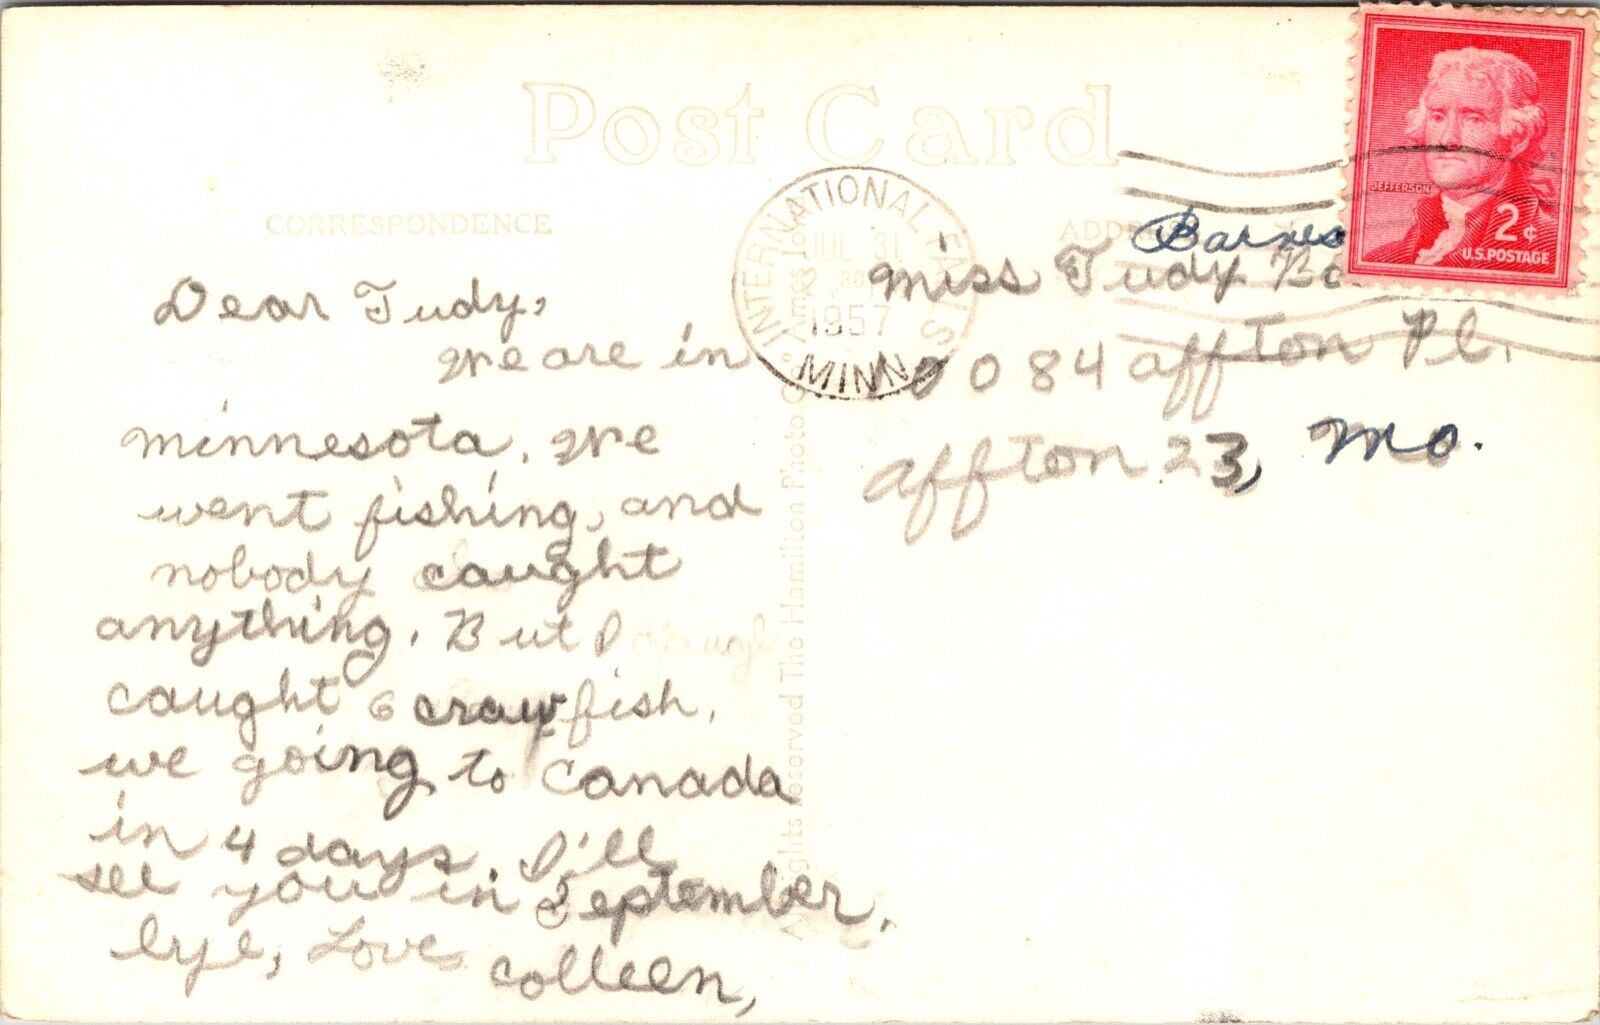 Post Card
CORRESPONDENCE
INTERNATIONAL FALLS
JUL 31
1957
MINN
JEFFERSON
2¢
U.S. POSTAGE
Dear Judy,
We are in
minnesota. We
went fishing, and
nobody caught
anything. But I
caught 6 crawfish.
we going to Canada
in 4 days. I'll
see you in September.
bye, Love
Colleen,
Barnes
Miss Judy
10084 affton Pl.
affton 23, Mo.
All Rights Reserved The Hamilton Photo Co. Ames Iowa